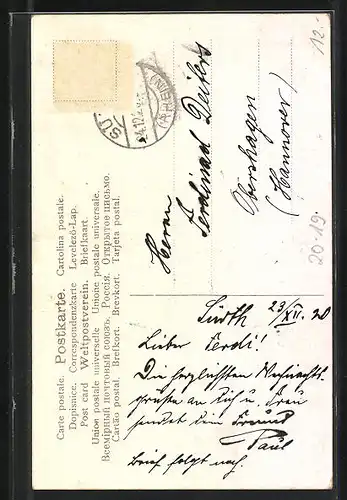 Postkarte.
Carte postale. Cartolina postale.
Dopisnice. Correspondenzkarte Levelező-Lap.
Post card Weltpostverein. Briefkaart.
Union postale universelle Unione postale universale.
Всемірный почтовый союзъ. Россія. Открытое письмо.
Cartão postal. Brefkort. Brevkort. Tarjeta postal.
SÜ
(RHEIN)
24.12
12.-
Herrn
Ferdinand Deiters
Obershagen
(Hannover)
20-19
Sürth 23/XII. 20
Lieber Ferdi!
Die herzlichsten Weihnachts-
grüße an Dich u. Frau
sendet dein Freund
Paul
Brief folgt nach.